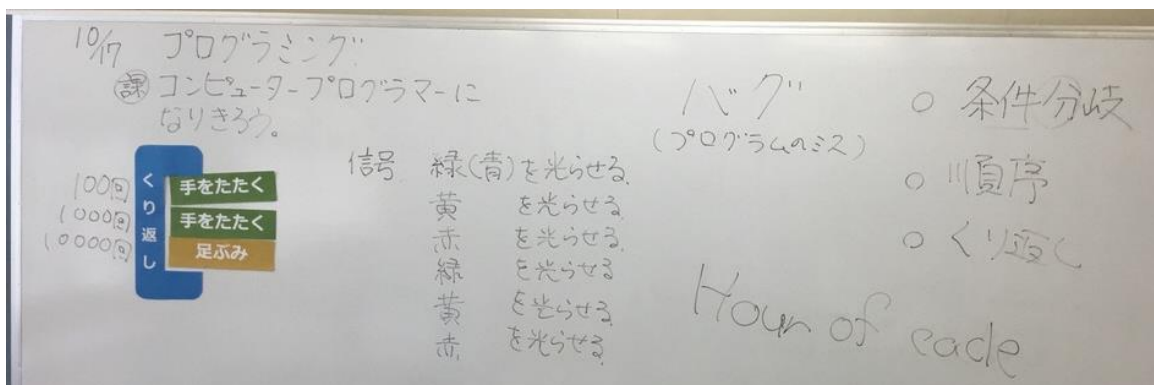 10/17 プログラミング
課 コンピュータープログラマーに
なりきろう。
100回
1000回
10000回
くり返し
手をたたく
手をたたく
足ぶみ
信号 緑(青)を光らせる
黄 を光らせる
赤 を光らせる
緑 を光らせる
黄 を光らせる
赤 を光らせる
バグ
(プログラムのミス)
○ 条件分岐
○ 順序
○ くり返し
Hour of code